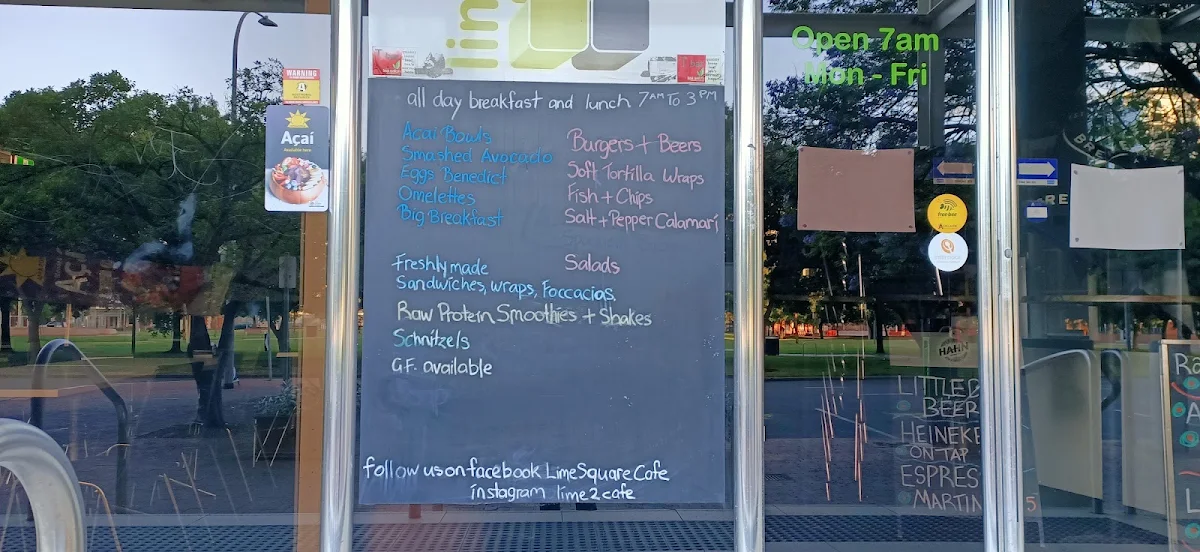 lin
WARNING
Açaí
Available here
all day breakfast and lunch 7AM TO 3PM
Acai Bowls
Smashed Avocado
Eggs Benedict
Omelettes
Big Breakfast
Burgers + Beers
Soft Tortilla Wraps
Fish + Chips
Salt + Pepper Calamari
Salads
Freshly made
Sandwiches, wraps, Foccacias,
Raw Protein Smoothies + Shakes
Schnitzels
G.F. available
follow us on facebook LimeSquareCafe
instagram lime2cafe
Open 7am
Mon - Fri
HAHN
LITTLE
BEER
HEINEKE
ON TAP
ESPRES
MARTIN
5